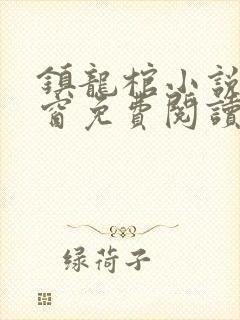 鎮龍棺小說
窗免費閱讀
绿荷子